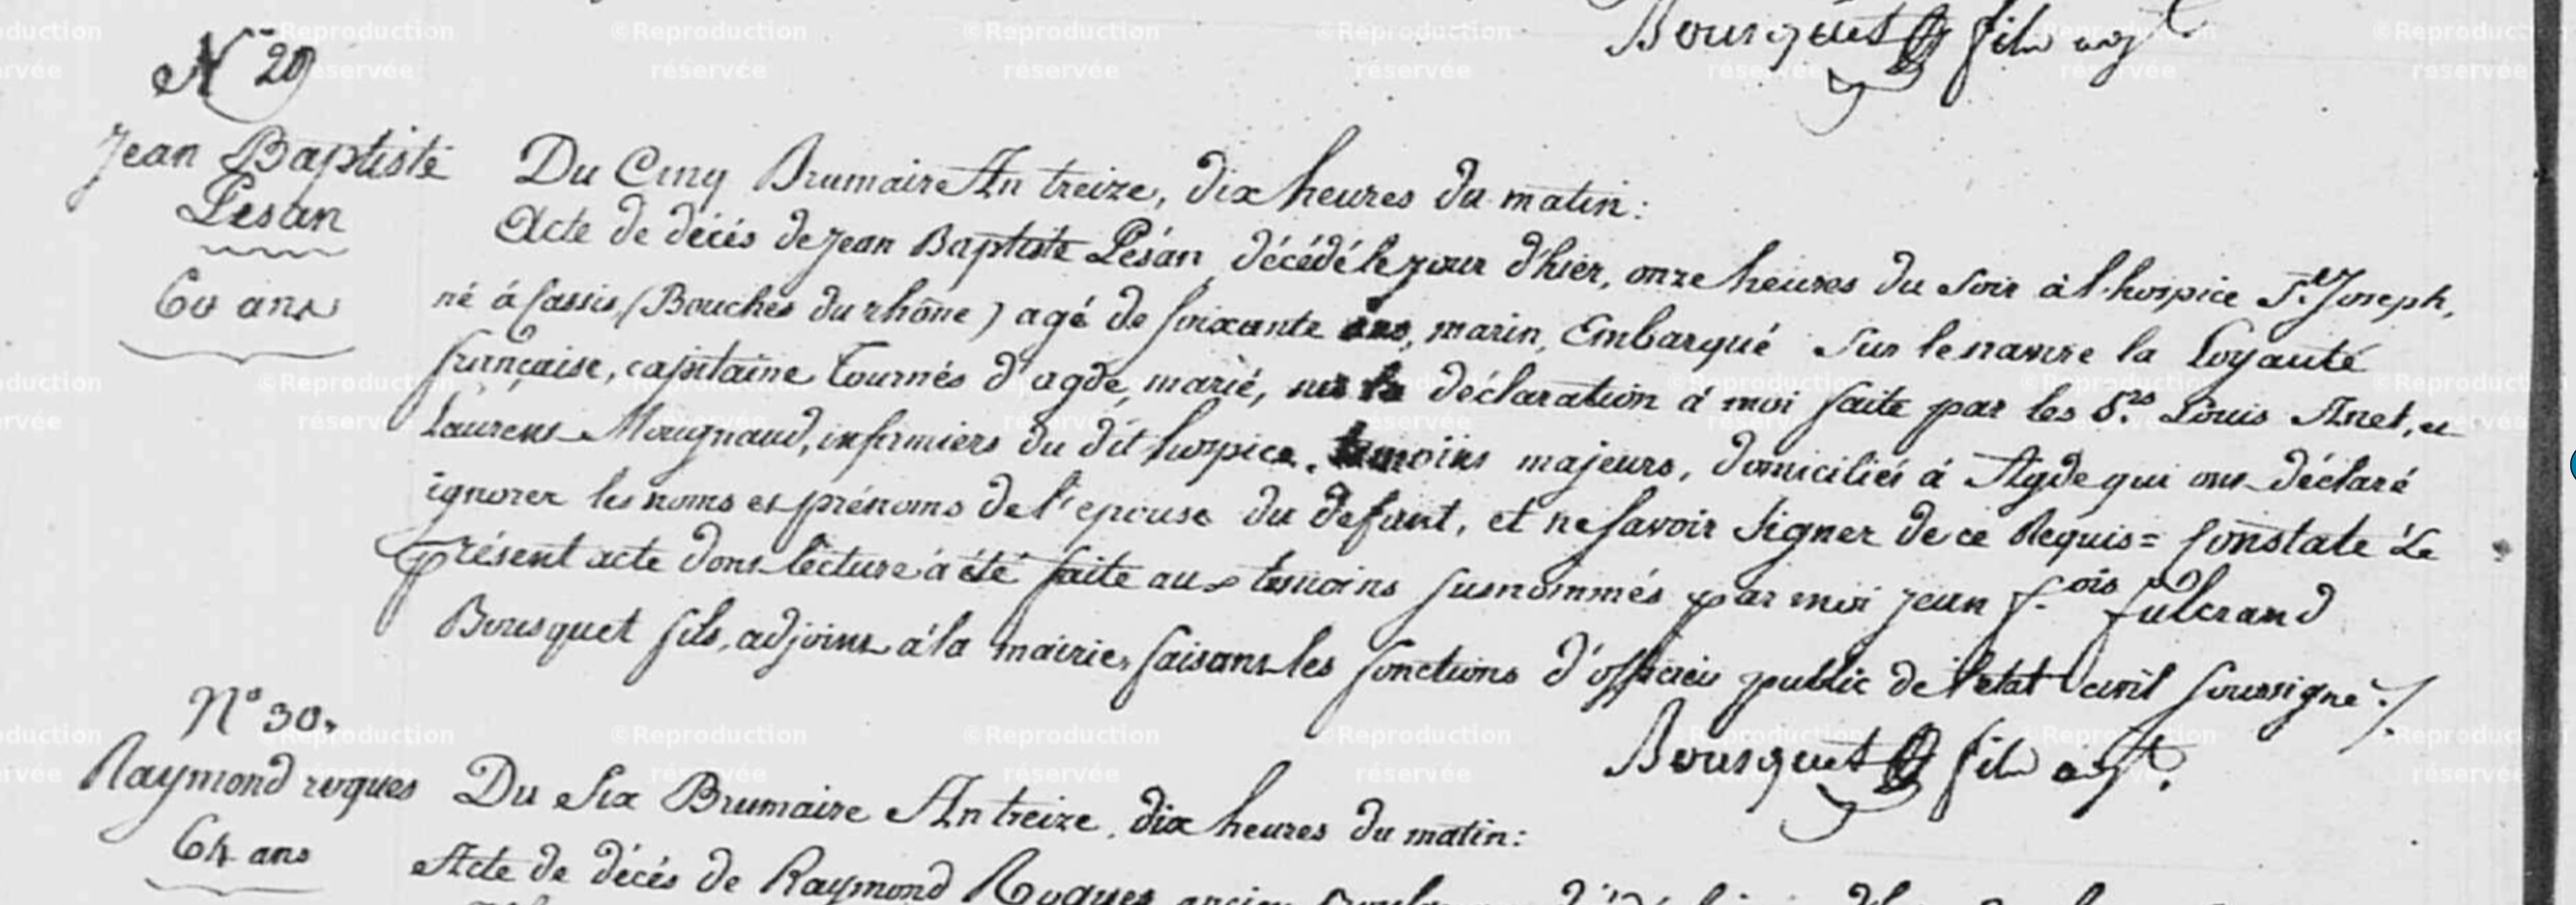 Bousquet fils adjt
N° 29
Jean Baptiste
Lesan
60 ans
Du Cinq Brumaire An treize, dix heures du matin:
Acte de décés de jean Baptiste Lésan, décédé le jour d'hier, onze heures du soir à l'hospice St. Joseph,
né à Cassis, (Bouches du rhône) agé de soixante ans, marin, Embarqué sur le navire la Loyauté
française, capitaine Tournés d'agde, marié, sur la déclaration à moi faite par les Srs. Louis Anet, et
Laurens Mougnaud, infirmiers du dit hospice, temoins majeurs, domiciliés à Agde qui ont déclaré
ignorer les noms et prénoms de l'epouse du defunt, et ne savoir signer de ce Requis= Constaté Le
présent acte dont lecture à été faite aux temoins susnommés par moi jean f.ois fulcrand
Bousquet fils, adjoint à la mairie, faisant les fonctions d'officier public de l'etat civil soussigné ./.
Bousquet fils adjt.
N° 30.
Raymond roques
64 ans
Du Six Brumaire An treize, dix heures du matin:
Acte de décés de Raymond Roques
©Reproduction réservée